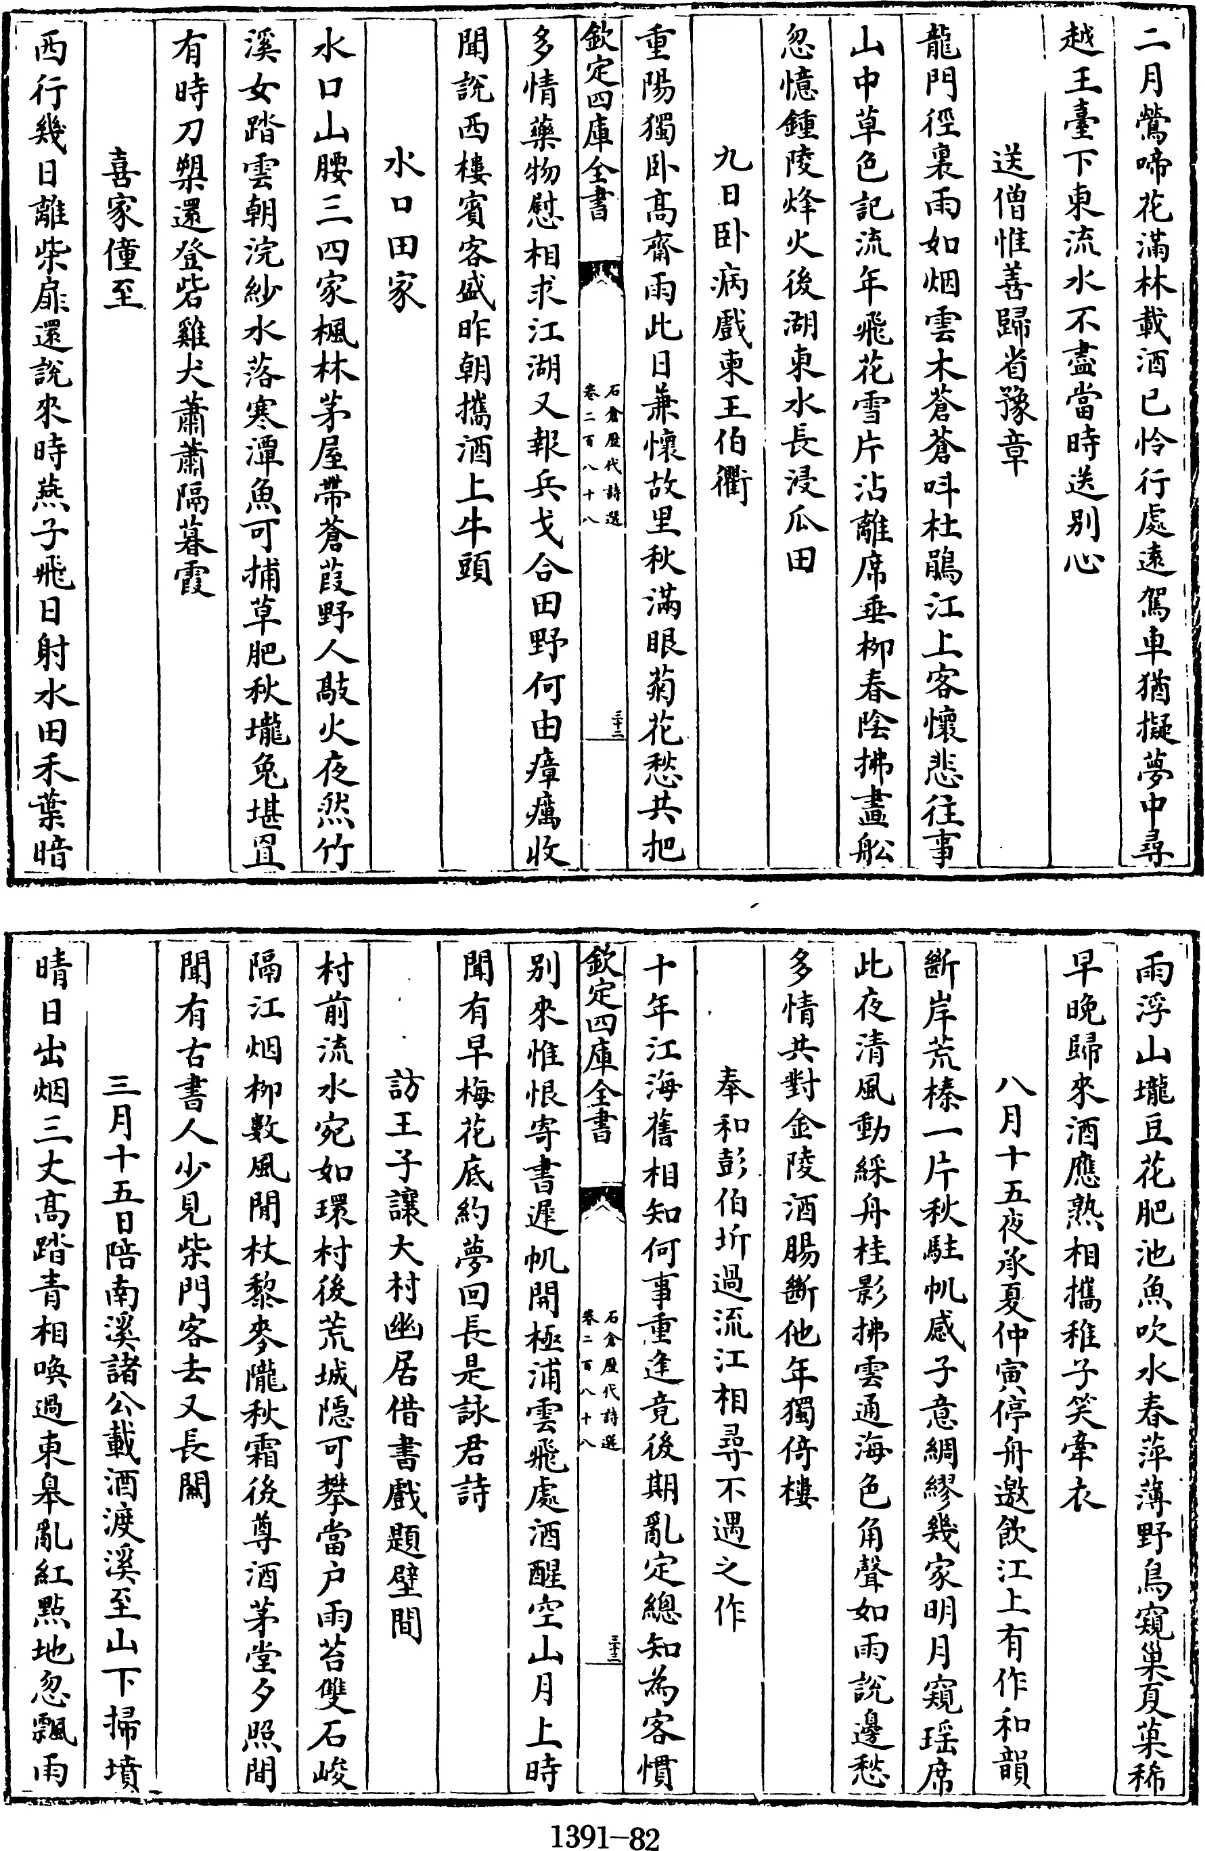 二月鶯啼花滿林載酒已怜行處遠駕車猶擬夢中尋
越王臺下東流水不盡當時送别心
送僧惟善歸省豫章
龍門徑裏雨如烟雲木蒼蒼呌杜鵑江上客懷悲往事
山中草色記流年飛花雪片沾離席垂栁春陰拂畫舩
忽憶鍾陵烽火後湖東水長浸瓜田
九日卧病戲柬王伯衢
重陽獨卧髙齋雨此日兼懷故里秋滿眼菊花愁共把
欽定四庫全書
石倉歷代詩選
卷二百八十八
三十二
多情藥物慰相求江湖又報兵戈合田野何由瘴癘收
聞說西樓賓客盛昨朝攜酒上牛頭
水口田家
水口山腰三四家楓林茅屋帶蒼葭野人敲火夜然竹
溪女踏雲朝浣紗水落寒潭魚可捕草肥秋壠兔堪罝
有時刀槊還登砦雞犬蕭蕭隔暮霞
喜家僮至
西行幾日離柴扉還說來時燕子飛日射水田禾葉暗
雨浮山壠豆花肥池魚吹水春萍薄野鳥窺巢夏菓稀
早晚歸來酒應熟相攜稚子笑牽衣
八月十五夜承夏仲寅停舟邀飲江上有作和韻
斷岸荒榛一片秋駐帆感子意綢繆幾家明月窺瑶席
此夜清風動綵舟桂影拂雲通海色角聲如雨說邊愁
多情共對金陵酒腸斷他年獨倚樓
奉和彭伯圻過流江相尋不遇之作
十年江海舊相知何事重逢竟後期亂定總知為客慣
欽定四庫全書
石倉歷代詩選
卷二百八十八
三十三
别來惟恨寄書遲帆開極浦雲飛處酒醒空山月上時
聞有早梅花底約夢回長是詠君詩
訪王子讓大村幽居借書戲題壁間
村前流水宛如環村後荒城隠可攀當户雨苔雙石峻
隔江烟栁數風閒杖藜麥隴秋霜後尊酒茅堂夕照間
聞有古書人少見柴門客去又長關
三月十五日陪南溪諸公載酒渡溪至山下掃墳
晴日出烟三丈髙踏青相喚過東皋亂紅㸃地忽飄雨
1391-82